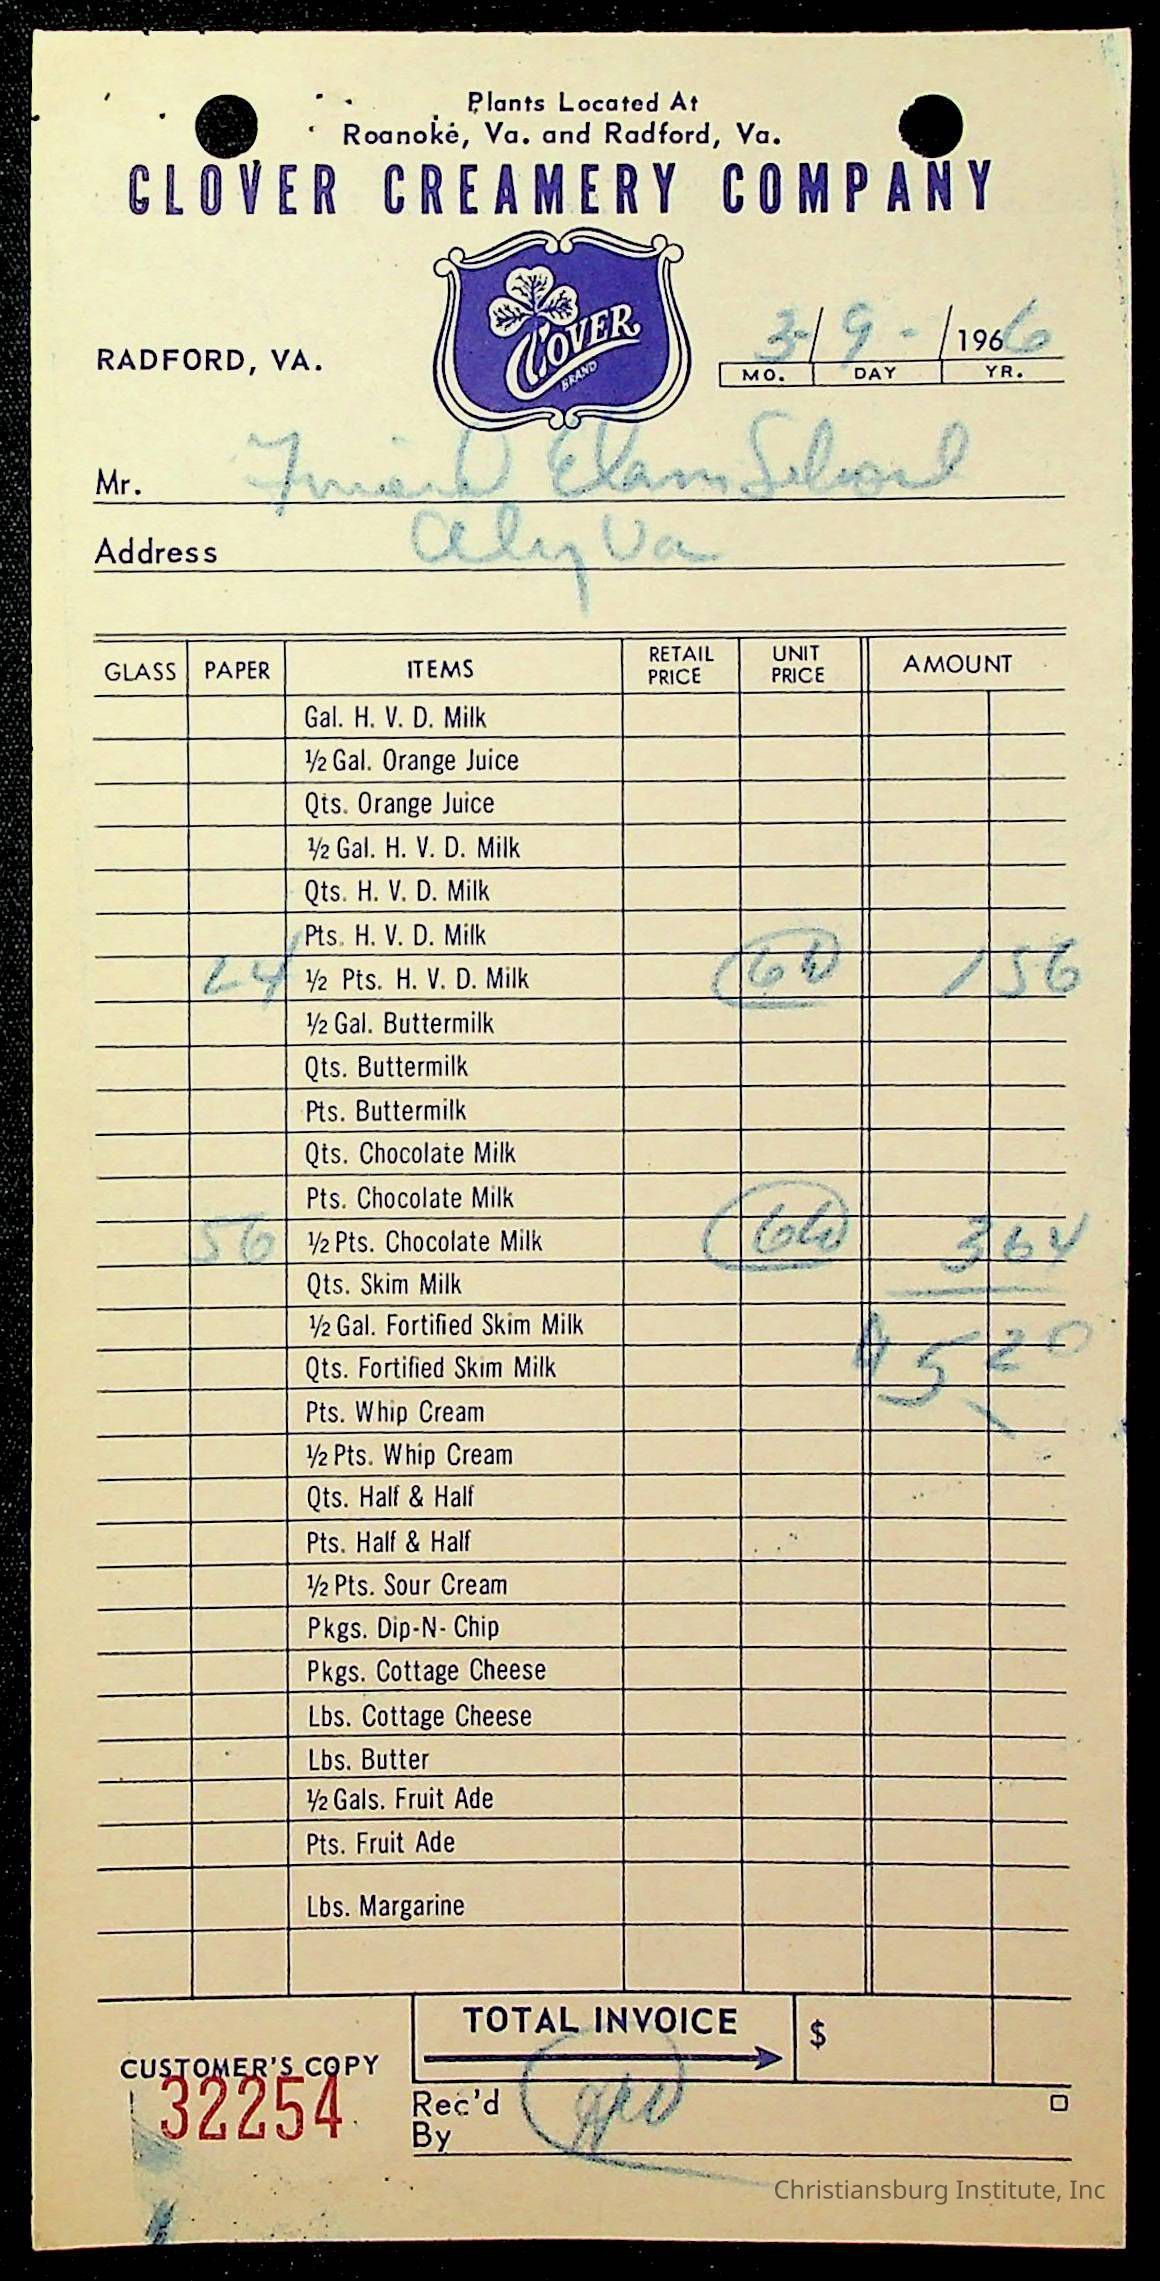 Plants Located At
Roanoke, Va. and Radford, Va.
CLOVER CREAMERY COMPANY
CLOVER
BRAND
RADFORD, VA.
3-/9-/1966
MO. DAY YR.
Mr. Friend Elam School
Address Va
GLASS PAPER ITEMS RETAIL PRICE UNIT PRICE AMOUNT
Gal. H. V. D. Milk
½ Gal. Orange Juice
Qts. Orange Juice
½ Gal. H. V. D. Milk
Qts. H. V. D. Milk
Pts. H. V. D. Milk
24 ½ Pts. H. V. D. Milk 1 56
½ Gal. Buttermilk
Qts. Buttermilk
Pts. Buttermilk
Qts. Chocolate Milk
Pts. Chocolate Milk
56 ½ Pts. Chocolate Milk 3 64
Qts. Skim Milk
½ Gal. Fortified Skim Milk
5 20
Qts. Fortified Skim Milk
Pts. Whip Cream
½ Pts. Whip Cream
Qts. Half & Half
Pts. Half & Half
½ Pts. Sour Cream
Pkgs. Dip-N-Chip
Pkgs. Cottage Cheese
Lbs. Cottage Cheese
Lbs. Butter
½ Gals. Fruit Ade
Pts. Fruit Ade
Lbs. Margarine
TOTAL INVOICE $
CUSTOMER'S COPY
32254
Rec'd
By
Christiansburg Institute, Inc